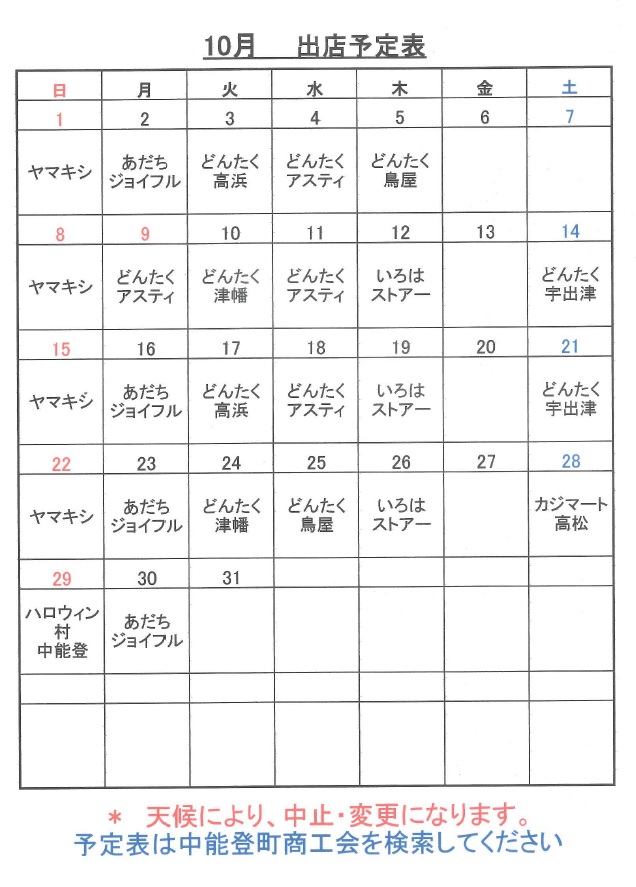 10月 出店予定表
日 月 火 水 木 金 土
1 2 3 4 5 6 7
ヤマキシ あだち どんたく どんたく どんたく
ジョイフル 高浜 アスティ 鳥屋
8 9 10 11 12 13 14
ヤマキシ どんたく どんたく どんたく いろは どんたく
アスティ 津幡 アスティ ストアー 宇出津
15 16 17 18 19 20 21
ヤマキシ あだち どんたく どんたく いろは どんたく
ジョイフル 高浜 アスティ ストアー 宇出津
22 23 24 25 26 27 28
ヤマキシ あだち どんたく どんたく いろは カジマート
ジョイフル 津幡 鳥屋 ストアー 高松
29 30 31
ハロウィン あだち
村 ジョイフル
中能登
* 天候により、中止・変更になります。
予定表は中能登町商工会を検索してください